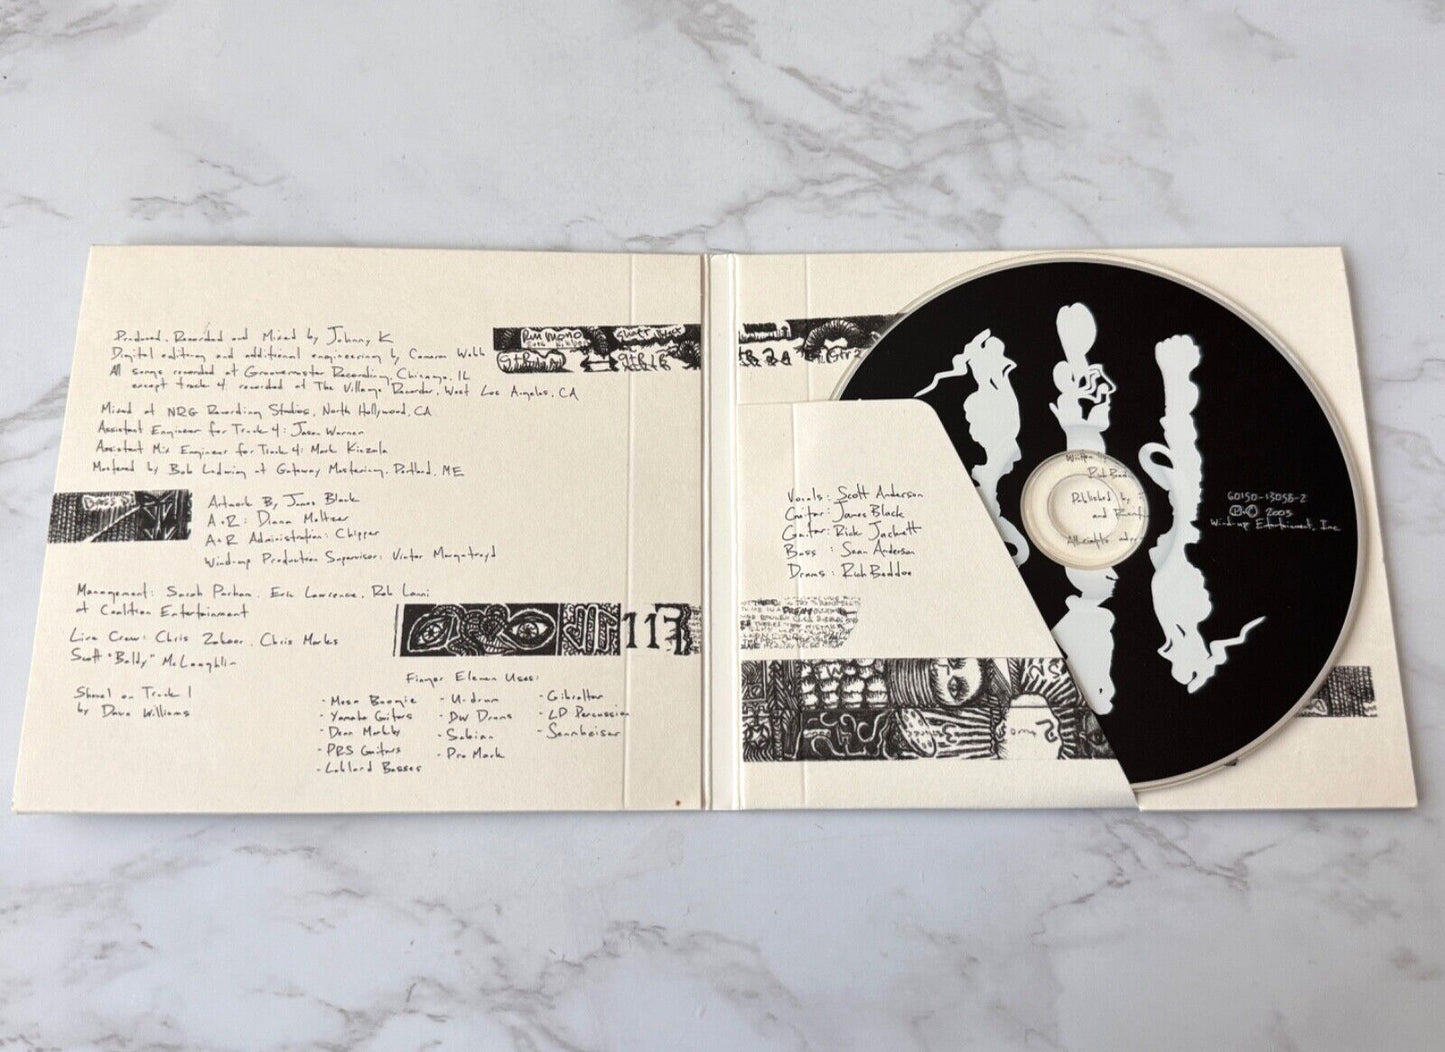 Produced, Recorded and Mixed by Johnny K
Digital editing and additional engineering by Cameron Webb
All songs recorded at Groovemaster Recording, Chicago, IL
except track 4 recorded at The Village Recorder, West Los Angeles, CA
Mixed at NRG Recording Studios, North Hollywood, CA
Assistant Engineer for Track 4: Jason Warner
Assistant Mix Engineer for Track 4: Mark Kiczula
Mastered by Bob Ludwig at Gateway Mastering, Portland, ME
Bass D.I
Artwork By James Black
A+R: Diana Meltzer
A+R Administration: Chipper
Wind-up Production Supervisor: Victor Murgatroyd
Management: Sarah Parham, Eric Lawrence, Rob Lanni
at Coalition Entertainment
Live Crew: Chris Zokoer, Chris Marks
Scott "Baldy" McLoughlin
Shovel on Track 1
by Dave Williams
117
Finger Eleven Uses:
- Mesa Boogie
- Yamaha Guitars
- Dean Markley
- PRS Guitars
- Lakland Basses
- U-drum
- DW Drums
- Sabian
- Pro Mark
- Gibraltar
- LP Percussion
- Sennheiser
Rm mono
Gtr 2
Vocals: Scott Anderson
Guitar: James Black
Guitar: Rick Jackett
Bass : Sean Anderson
Drums: Rich Beddoe
Written
Rich Bed
Published by :
and Renf
All rights adm
60150-13058-2
℗+© 2003
Wind-up Entertainment, Inc.